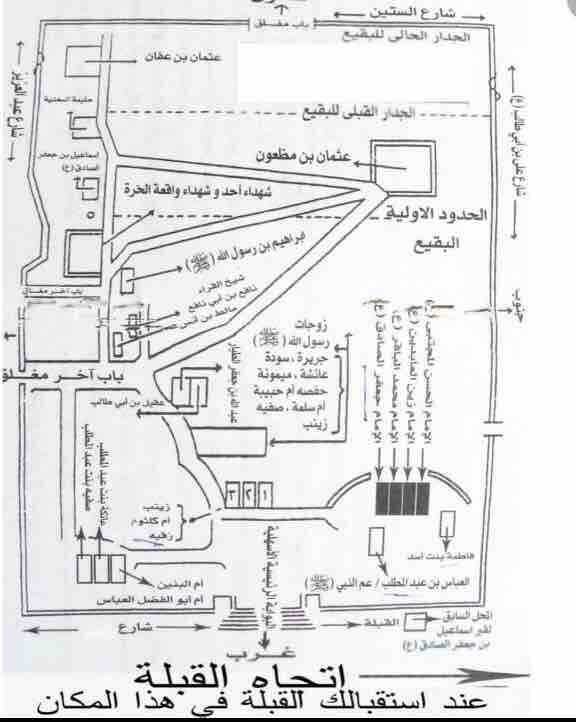 شارع الستين
باب مغلق
الجدار الحالي للبقيع
عثمان بن عفان
شارع عبد العزيز
شارع علي بن أبي طالب (ع)
حليمة السعدية
الجدار القبلي للبقيع
عثمان بن مظعون
اسماعيل بن جعفر
الصادق (ع)
شهداء أحد و شهداء واقعة الحرة
الحدود الاولية
البقيع
ابراهيم بن رسول الله (ﷺ)
شيخ القراء
نافع بن أبي نافع
باب آخر مغلق
جنوب
زوجات
رسول الله (ﷺ)
جريرة ، سودة
عائشة ، ميمونة
حفصه أم حبيبة
أم سلمة ، صفيه
زينب
الإمام الحسن المجتبى (ع)
الإمام زين العابدين (ع)
الإمام محمد الباقر (ع)
الإمام جعفر الصادق (ع)
باب آخر مغلق
عبد الله بن جعفر الطيار
عقيل بن أبي طالب
عاتكة بنت عبد المطلب
صفيه بنت عبد المطلب
٣ ٢ ١
زينب
أم كلثوم
رقيه
البوابة الرئيسية الاسهلية
فاطمة بنت أسد
العباس بن عبد المطلب / عم النبي (ﷺ)
أم البنين
أم ابو الفضل العباس
شارع
القبلة
المحل السابق
لقبر اسماعيل
بن جعفر الصادق (ع)
غرب
اتجاه القبلة
عند استقبالك القبلة في هذا المكان